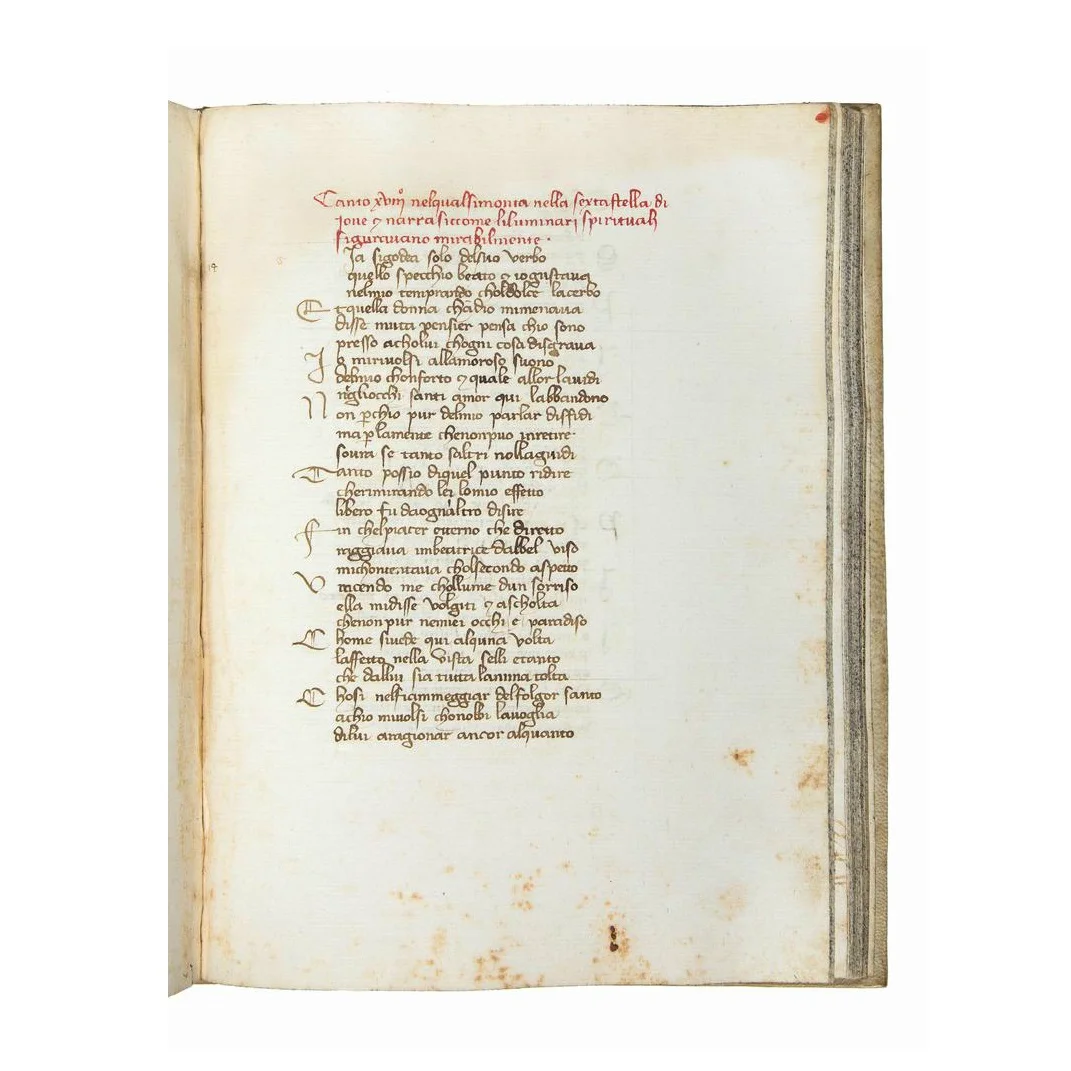 Canto xviijº nelqual simonta nella sexta stella di
Ioue ⁊ narra siccome liluminari spirituali
figurauano mirabilmente ·
Ia sigodea solo delsuo verbo
quello specchio beato ⁊ io gustaua
nelmio temprando choldolce lacerbo
Et quella donna chadio mimenaua
disse muta pensier pensa chio sono
presso acholui chogni cosa disgraua
Io mi riuolsi allamoroso suono
delmio chonforto ⁊ quale allor lauidi
negliocchi santi amor qui labbandono
Non perchio pur delmio parlar diffidi
ma perlamente chenonpuo inretire
soura se tanto saltri nollaguidi
Tanto possio diquel punto ridire
cherimirando lei lomio effetto
libero fu daognaltro disire
fin chelpiacer etterno che diretto
raggiaua imbeatrice dalbel viso
michontentaua cholsecondo aspetto
Vincendo me chollume dun sorriso
ella midisse volgiti ⁊ ascholta
chenonpur nemiei occhi e paradiso
Chome siuede qui alquna volta
laffetto nella vista selli etanto
che dallui sia tutta lanima tolta
Chosi nelfiammeggiar delfolgor santo
achio miuolsi chonobbi lauoglia
dilui aragionar ancor alquanto
14